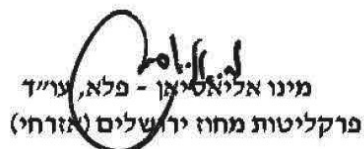 מינו אליאסיאן - פלא, עו״ד
פרקליטות מחוז ירושלים (אזרחי)